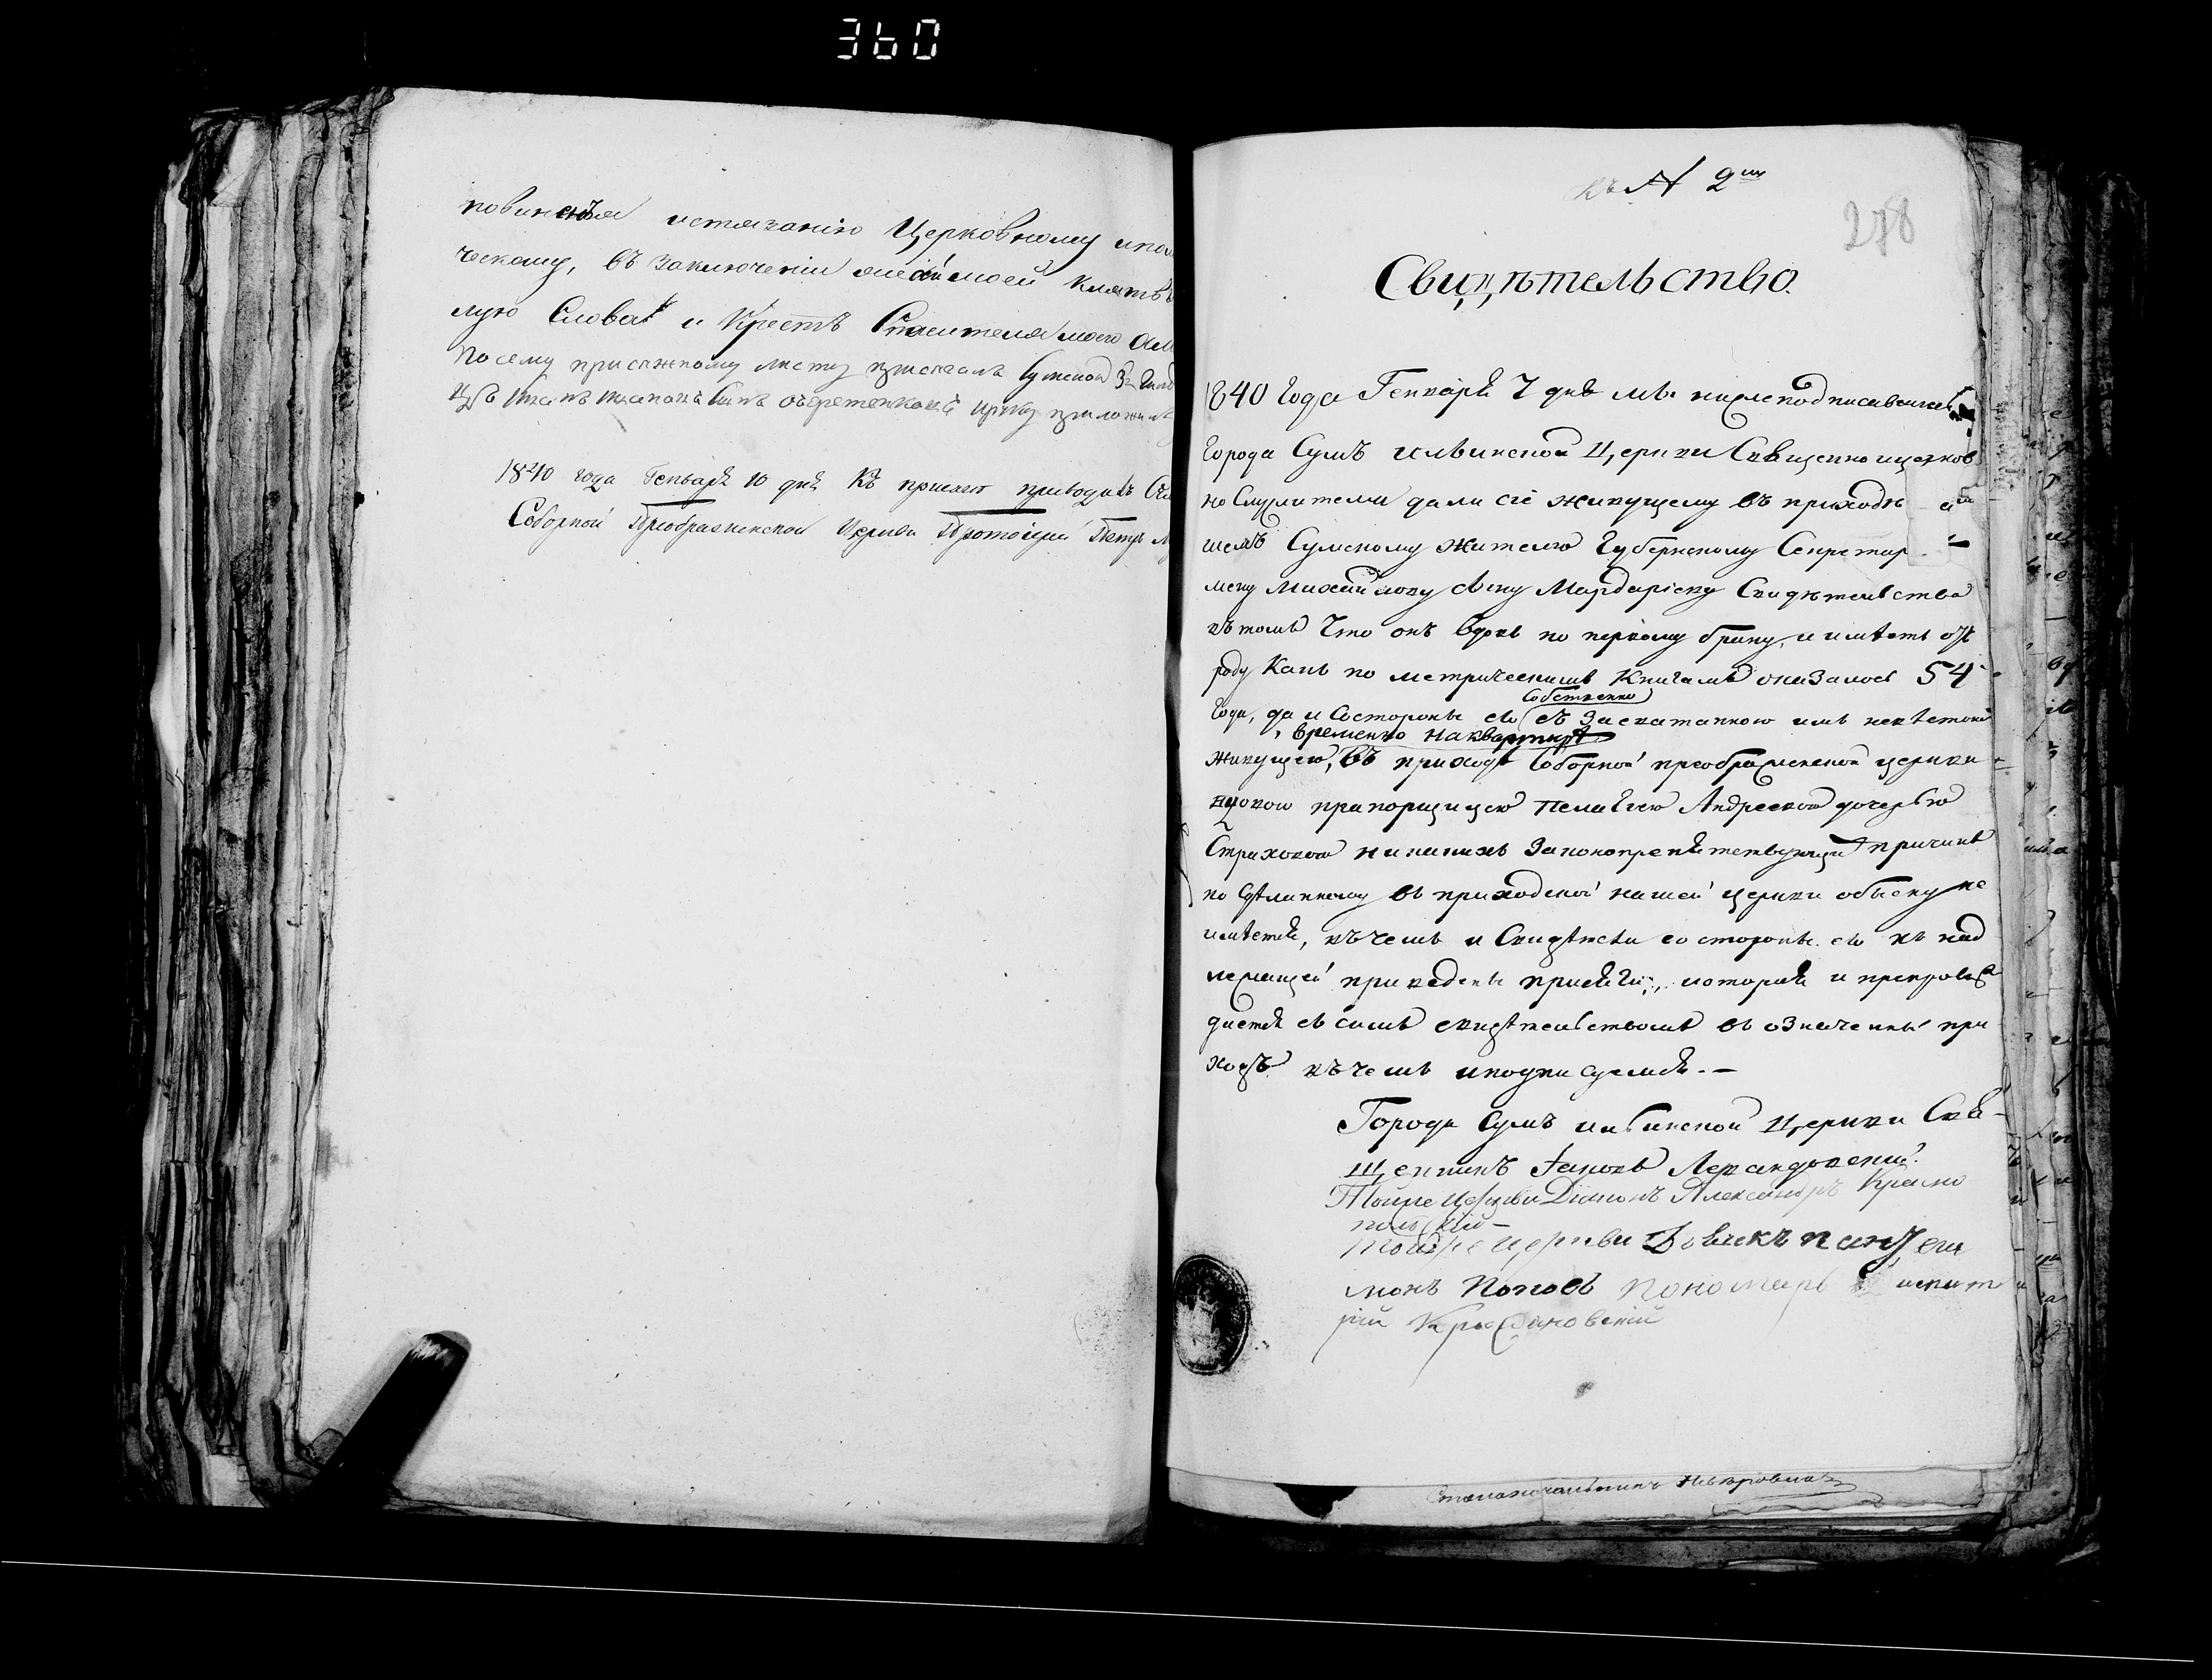 360
истязанію Церковному и по
ческому, въ заключеніи моей клятвы
лую Слова и Крестъ Спасителя моего Ам
По сему присяжному листу присягалъ Сумской 3й
руку приложилъ
1840 года Генваря 10 дня Къ присягѣ приводилъ
Соборной Преображенской Церкви Протоіерей Петръ
къ № 2му
278
Свидѣтельство.
1840 Года Генваря 7 дня мы нижеподписавшіеся
города Сумъ Ильинской Церкви Священно и церков
но Служители дали сіе живущему въ приходѣ
шемъ Сумскому жителю Губернскому Секретар
Михайлову сыну Мардарьеву Свидѣтельство
въ томъ что онъ вдовъ по первому браку, и имѣетъ отъ
роду какъ по метрическимъ Книгамъ оказалось 54
Собственно
года, да и Состороны его съ Засватанною имъ невѣстою
временно на квартирѣ
живущею, въ приходѣ Соборной преображенской церкви
вдовою прапорщицею Пелагіею Андреевою дочерью
Страховою никакихъ Законопрепятствующихъ причинъ
по Сдѣланному въ приходской нашей церкви обыску не
имѣется, въ чемъ и Свидѣтели со стороны его къ над
лежащей приведены присяги, которая и препрово
ждается съ симъ свидѣтельствомъ въ означенный при
ходъ въ чемъ и подписуемся. —
Города Сумъ Ильинской Церкви Свя-
щенникъ Іаковъ
Тойже Церкви Діаконъ Александръ Красно
польскій
Тойже Церкви Дьячекъ Пантели
монъ Поповъ Пономарь
рій
Столоначальникъ